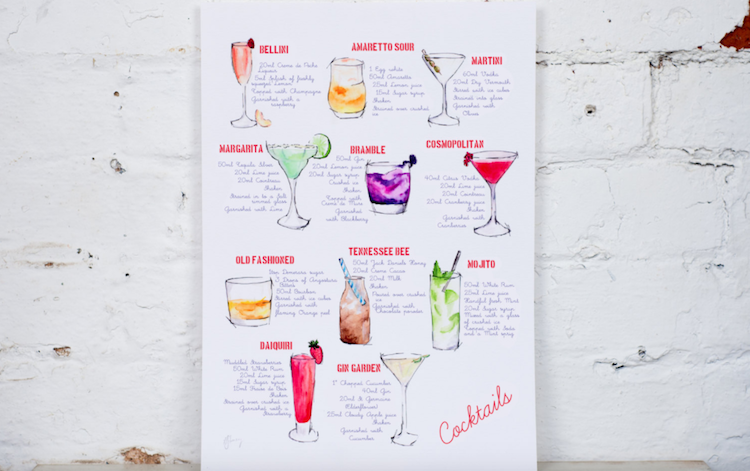 BELLINI
20ml Creme de Peche
Liqueur
5ml Splash of freshly
squeezed Lemon
Topped with Champagne
Garnished with a
raspberry
AMARETTO SOUR
1 Egg white
50ml Amaretto
25ml Lemon juice
15ml Sugar syrup
Shaker
Strained over crushed
ice
MARTINI
60ml Vodka
20ml Dry Vermouth
Stired with ice cubes
Strained into glass
Garnished with
Olives
MARGARITA
50ml Tequila Silver
20ml Lime juice
20ml Cointreau
Shaker
Strained in to a salt
rimmed glass
Garnished with Lime
BRAMBLE
50ml Gin
20ml Lemon juice
20ml Sugar syrup
Crushed ice
Shaker
Topped with
Creme de Mure
Garnished
with Blackberry
COSMOPOLITAN
40ml Citrus Vodka
20ml Lime juice
20ml Cointreau
20ml Cranberry juice
Shaker
Garnished with
Cranberries
OLD FASHIONED
Demerara sugar
3 Drops of Angostura
Bitters
50ml Bourbon
Stired with ice cubes
Garnished with
flaming Orange peel
TENNESSEE BEE
50ml Jack Daniels Honey
20ml Creme Cacao
20ml Milk
Shaker
Poured over crushed
ice
Garnished with
Chocolate powder
MOJITO
50ml White Rum
20ml Lime juice
Handful fresh Mint
20ml Sugar syrup
Mixed with a glass
of crushed ice
Topped with Soda
and a Mint sprig
DAIQUIRI
Muddled Strawberries
50ml White Rum
20ml Lime juice
15ml Sugar syrup
Shaker
Strained over crushed ice
Garnished with a
Strawberry
GIN GARDEN
1" Chopped Cucumber
40ml Gin
20ml St Germaine
(Elderflower)
25ml Cloudy Apple juice
Shaker
Garnished with
Cucumber
Cocktails